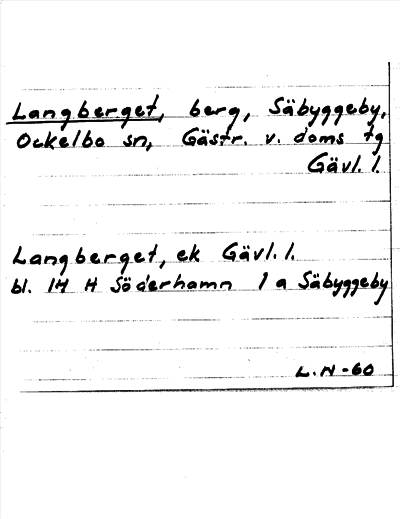 Langberget, berg, Säbyggeby,
Ockelbo sn, Gästr. v. doms tg
Gävl. l.
Langberget, ek Gävl. l.
bl. 14 H Söderhamn 1 a Säbyggeby
L. N - 60